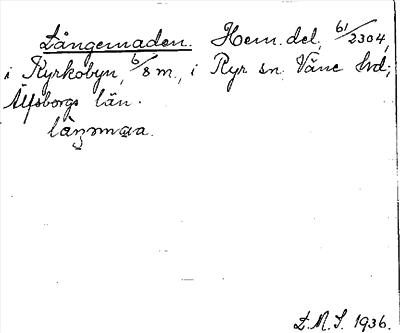 Långemaden. Hem. del, 61/2304,
i Kyrkobyn, 6/8 m., i Ryr sn. Väne hd;
Älfsborgs län.
låŋəmaa.
L.M.S. 1936.